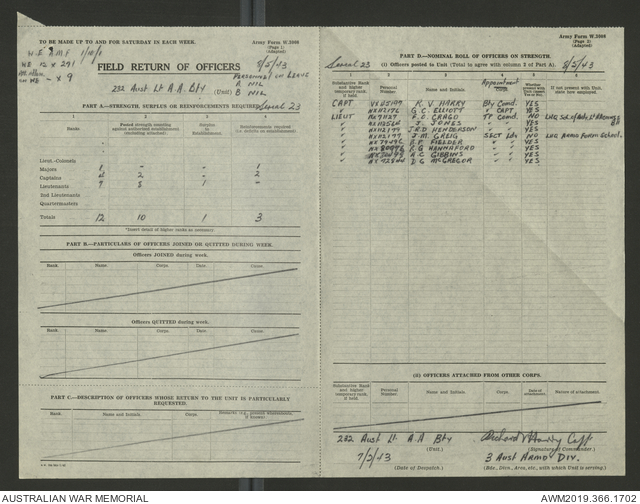 TO BE MADE UP TO AND FOR SATURDAY IN EACH WEEK.
Army Form W.3008
(Page 1)
(Adapted)
W.E. A.M.F 1/10/1
WE 12 x 291
WE - x 9
FIELD RETURN OF OFFICERS 8/5/43
PERSONNEL ON LEAVE
232 Aust Lt A.A. Bty (Unit)
A NIL
B NIL
PART A—STRENGTH, SURPLUS OR REINFORCEMENTS REQUIRED. Serial 23
1 2 3 4
Ranks Posted strength counting against authorised establishments (including attached). Surplus to Establishment. Reinforcements required (i.e. deficits on establishment).
Lieut.-Colonels
Majors 1 - 1
Captains 4 2 - 2
Lieutenants 7 8 1 -
2nd Lieutenants
Quartermasters
Totals 12 10 1 3
*Insert detail of higher ranks as necessary.
PART B.—PARTICULARS OF OFFICERS JOINED OR QUITTED DURING WEEK.
Officers JOINED during week.
Rank. Name. Corps. Date. Cause.
Officers QUITTED during week.
Rank. Name. Corps. Date. Cause.
PART C.—DESCRIPTION OF OFFICERS WHOSE RETURN TO THE UNIT IS PARTICULARLY REQUESTED.
Rank. Name and Initials. Corps.
Army Form W.3008
(Page 2)
(Adapted)
PART D—NOMINAL ROLL OF OFFICERS ON STRENGTH.
Serial 23 (i) Officers posted to Unit (Total to agree with column 2 of Part A). 8/5/43
1 2 3 4 5 6
Substantive Rank and higher temporary rank, if held. Personal Number. Name and Initials. Appointment Corps. Whether present with Unit (insert Yes or No). If not present with Unit, state how employed.
CAPT R. V. HARRY Bty Comd. YES
" G. C. ELLIOTT " CAPT YES
LIEUT F. O. CRAGO TP Comd. NO
" S. JONES " " YES
" J.R.D HENDERSON " " YES
" J. M. GREIG SECT Ldr NO LHQ Armd Form School.
" R. F. FIELDER " " YES
" R G HANNAFORD " " YES
" A C GIBBINS " " YES
" D G McGREGOR " " YES
(ii) OFFICERS ATTACHED FROM OTHER CORPS.
Substantive Rank and higher temporary rank, if held. Personal Number. Name and Initials. Corps. Date of Attachment. Nature of attachment.
232 Aust Lt A.A Bty (Unit.)
Richard V Harry Capt (Signature of Commander.)
7/5/43 (Date of Despatch.)
3 Aust Armd Div. (Bde., Divn., Area, etc., with which Unit is serving.)
AUSTRALIAN WAR MEMORIAL
AWM2019.366.1702